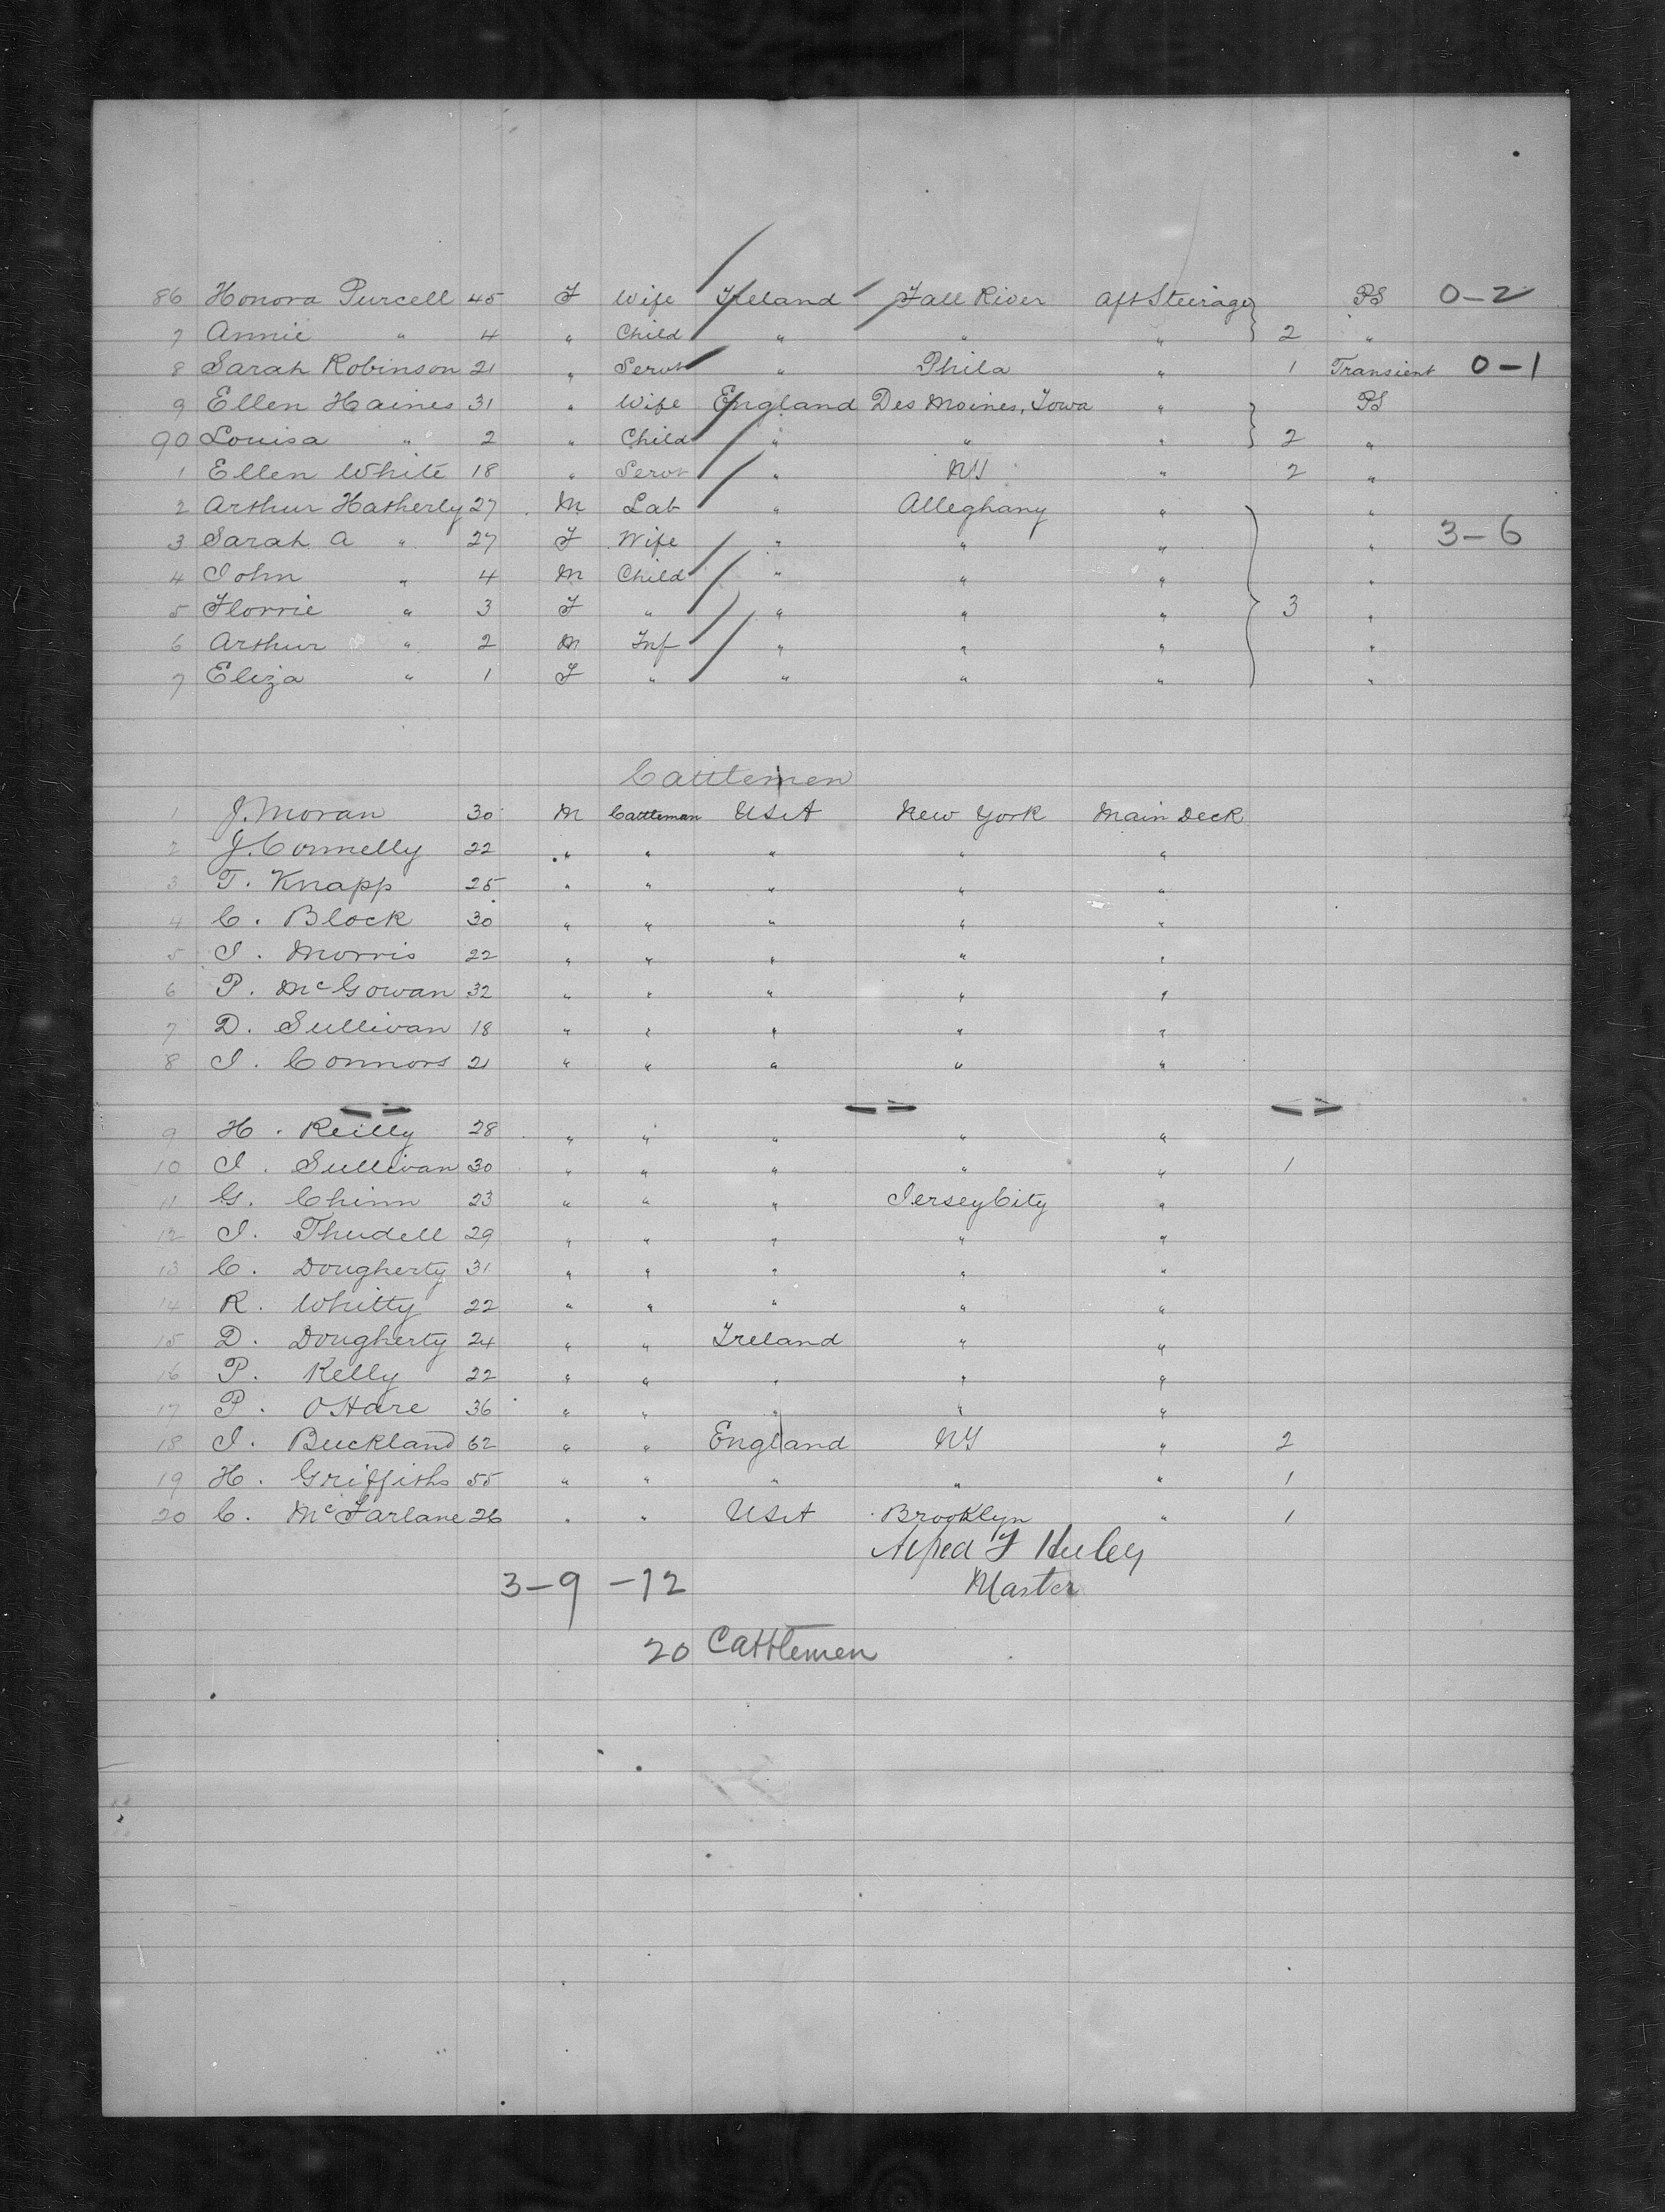 86 Honora Purcell 45 F Wife Ireland Fall River Aft Steerage PS 0-2
7 Annie " 4 " Child " " " 2 "
8 Sarah Robinson 21 " Servt " Phila " 1 Transient 0-1
9 Ellen Haines 31 " Wife England Des Moines, Iowa " PS
90 Louisa " 2 " Child " " " 2 "
1 Ellen White 18 " Servt " NY " 2 "
2 Arthur Hatherly 27 M Lab " Alleghany " "
3 Sarah A " 27 F Wife " " " " 3-6
4 John " 4 M Child " " " "
5 Florrie " 3 F " " " " 3 "
6 Arthur " 2 M Inf " " " "
7 Eliza " 1 F " " " " "
Cattlemen
1 J. Moran 30 M Cattleman USA New York Main Deck
2 J. Connelly 22 " " " " "
3 T. Knapp 25 " " " " "
4 C. Block 30 " " " " "
5 J. Morris 22 " " " " "
6 P. McGowan 32 " " " " "
7 D. Sullivan 18 " " " " "
8 J. Connors 21 " " " " "
9 H. Reilly 28 " " " " "
10 J. Sullivan 30 " " " " " 1
11 G. Chinn 23 " " " Jersey City "
12 J. Thudell 29 " " " " "
13 C. Dougherty 31 " " " " "
14 R. Whitty 22 " " " " "
15 D. Dougherty 24 " " Ireland " "
16 P. Kelly 22 " " " " "
17 P. OHare 36 " " " " "
18 J. Buckland 62 " " England NY " 2
19 H. Griffiths 55 " " " " " 1
20 C. McFarlane 26 " " USA Brooklyn " 1
Alfred F
Master
3-9-12
20 Cattlemen